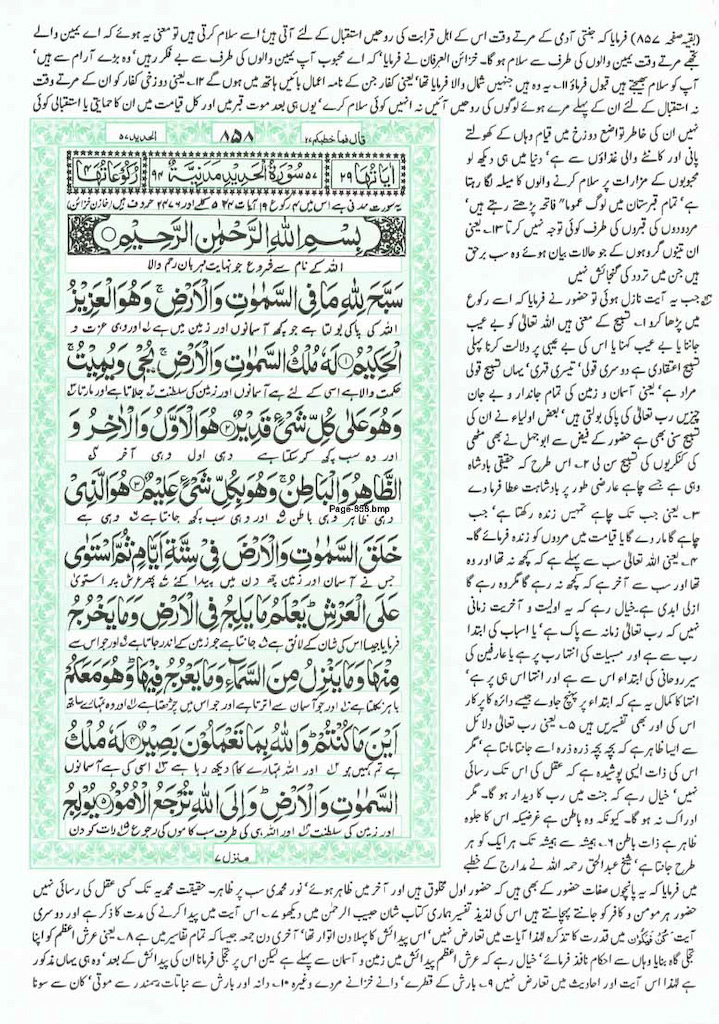 (بقیہ صفحہ ۸۵۷) فرمایا کہ جنتی آدمی کے مرتے وقت اس کے اہل قرابت کی روحیں استقبال کے لئے آتی ہیں' اسے سلام کرتی ہیں تو معنی یہ ہوئے کہ اے یمین والے
تجھے مرتے وقت یمین والوں کی طرف سے سلام ہو گا۔ خزائن العرفان نے فرمایا' اے محبوب آپ یمین والوں کی طرف سے بے فکر رہیں' وہ بڑے آرام سے ہیں'
آپ کو سلام بھیجتے ہیں قبول فرماؤ ۱۱۔ یہ وہ ہیں جنہیں شمال والا فرمایا تھا' یعنی کفار جن کے نامہ اعمال بائیں ہاتھ میں ہوں گے ۱۲۔ یعنی دوزخی کفار کو ان کے مرتے وقت
نہ استقبال کے لئے ان کے پہلے مرے ہوئے لوگوں کی روحیں آئیں نہ انہیں کوئی سلام کرے' یوں ہی بعد موت قبر میں اور کل قیامت میں ان کا حمایتی یا استقبالی کوئی
نہیں ان کی خاطر تواضع دوزخ میں قیام وہاں کے کھولتے
پانی اور کانٹے والی غذاؤں سے ہے' دنیا میں ہی دیکھ لو
محبوبوں کے مزارات پر سلام کرنے والوں کا میلہ لگا رہتا
ہے' تمام قبرستان میں لوگ عموماً فاتحہ پڑھتے رہتے ہیں'
مردودوں کی قبروں کی طرف کوئی توجہ نہیں کرتا ۱۳۔ یعنی
ان تینوں گروہوں کے جو حالات بیان ہوئے وہ سب برحق
ہیں جن میں تردد کی گنجائش نہیں
جب یہ آیت نازل ہوئی تو حضور نے فرمایا کہ اسے رکوع
میں پڑھا کرو ۱۔ تسبیح کے معنی ہیں اللہ تعالیٰ کو بے عیب
جاننا یا بے عیب کہنا یا اس کی بے عیبی پر دلالت کرنا پہلی
تسبیح اعتقادی ہے دوسری قولی' تیسری قہری' یہاں تسبیح قولی
مراد ہے' یعنی آسمان و زمین کی تمام جاندار و بے جان
چیزیں رب تعالیٰ کی پاکی بولتی ہیں' بعض اولیاء نے ان کی
تسبیح سنی بھی ہے حضور کے فیض سے ابوجہل نے بھی مٹھی
کی کنکریوں کی تسبیح سن لی ۲۔ اس طرح کہ حقیقی بادشاہ
وہی ہے جسے چاہے عارضی طور پر بادشاہت عطا فرما دے
۳۔ یعنی جب تک چاہے تمہیں زندہ رکھتا ہے' جب
چاہے گا مار دے گا یا قیامت میں مردوں کو زندہ فرمائے گا۔
۴۔ یعنی اللہ تعالیٰ سب سے پہلے ہے کہ کچھ نہ تھا اور وہ
تھا اور سب سے آخر ہے کہ کچھ نہ رہے گا مگر وہ رہے گا
ازلی ابدی ہے۔ خیال رہے کہ یہ اولیت و آخریت زمانی
نہیں کہ رب تعالیٰ زمانہ سے پاک ہے' یا اسباب کی ابتدا
رب سے ہے اور مسببات کی انتہا رب پر ہے یا عارفین کی
سیر روحانی کی ابتداء اس سے ہے اور انتہا اس ہی پر ہے'
انتہا کا کمال یہ ہے کہ ابتداء پر پہنچ جاوے جیسے دائرہ کا پرکار
اس کی اور بھی تفسیریں ہیں ۵۔ یعنی رب تعالیٰ دلائل
سے ایسا ظاہر ہے کہ بچہ بچہ ذرہ ذرہ اسے جانتا مانتا ہے' مگر
اس کی ذات ایسی پوشیدہ ہے کہ عقل کی اس تک رسائی
نہیں' خیال رہے کہ جنت میں رب کا دیدار ہو گا۔ مگر
ادراک نہ ہو گا۔ کیونکہ وہ باطن ہے غرضیکہ اس کا جلوہ
ظاہر ہے ذات باطن ۶۔ ہمیشہ سے ہمیشہ تک ہر ایک کو ہر
طرح جانتا ہے' شیخ عبدالحق رحمہ اللہ نے مدارج کے خطبے
الحدید ۵۷
۸۵۸
قال فما خطبکم ۲۷
اٰیَاتُہَا ۲۹
۵۷ سُوْرَۃُ الْحَدِیْدِ مَدَنِیَّۃٌ ۹۴
رُکُوْعَاتُہَا ۴
یہ سورت مدنی ہے اس میں ۴ رکوع ۲۹ آیات ۵۴۴ کلمے اور ۲۴۷۶ حروف ہیں (خازن خزائن)
بِسْمِ اللّٰهِ الرَّحْمٰنِ الرَّحِیْمِ
اللہ کے نام سے شروع جو نہایت مہربان رحم والا
سَبَّحَ لِلّٰهِ مَا فِی السَّمٰوٰتِ وَالْاَرْضِ ۚ وَهُوَ الْعَزِیْزُ
اللہ کی پاکی بولتا ہے جو کچھ آسمانوں اور زمین میں ہے اور وہی عزت و
الْحَکِیْمُ ۱ لَهٗ مُلْكُ السَّمٰوٰتِ وَالْاَرْضِ ۚ یُحْیٖ وَیُمِیْتُ ۚ
حکمت والا ہے اسی کے لئے ہے آسمانوں اور زمین کی سلطنت جلاتا ہے اور مارتا
وَهُوَ عَلٰی کُلِّ شَیْءٍ قَدِیْرٌ ۲ هُوَ الْاَوَّلُ وَالْاٰخِرُ وَ
اور وہ سب کچھ کر سکتا ہے وہی اول وہی آخر
الظَّاهِرُ وَالْبَاطِنُ ۚ وَهُوَ بِکُلِّ شَیْءٍ عَلِیْمٌ ۳ هُوَ الَّذِیْ
وہی ظاہر وہی باطن اور وہی سب کچھ جانتا ہے وہی ہے
Page-858.bmp
خَلَقَ السَّمٰوٰتِ وَالْاَرْضَ فِیْ سِتَّةِ اَیَّامٍ ثُمَّ اسْتَوٰی
جس نے آسمان اور زمین چھ دن میں پیدا کئے پھر عرش پر استویٰ
عَلَی الْعَرْشِ ؕ یَعْلَمُ مَا یَلِجُ فِی الْاَرْضِ وَمَا یَخْرُجُ
فرمایا جیسا اس کی شان کے لائق ہے جانتا ہے جو زمین کے اندر جاتا ہے اور جو اس سے
مِنْهَا وَمَا یَنْزِلُ مِنَ السَّمَآءِ وَمَا یَعْرُجُ فِیْهَا ؕ وَهُوَ مَعَکُمْ
باہر نکلتا ہے اور جو آسمان سے اترتا ہے اور جو اس میں چڑھتا ہے اور وہ تمہارے ساتھ
اَیْنَ مَا کُنْتُمْ ؕ وَاللّٰهُ بِمَا تَعْمَلُوْنَ بَصِیْرٌ ۴ لَهٗ مُلْكُ
ہے تم کہیں ہو اور اللہ تمہارے کام دیکھ رہا ہے اسی کی ہے آسمانوں
السَّمٰوٰتِ وَالْاَرْضِ ؕ وَاِلَی اللّٰهِ تُرْجَعُ الْاُمُوْرُ ۵ یُوْلِجُ
اور زمین کی سلطنت اور اللہ ہی کی طرف سب کاموں کی رجوع رات کو دن
منزل ۷
میں فرمایا کہ یہ پانچوں صفات حضور کے بھی ہیں کہ حضور اول مخلوق ہیں اور آخر میں ظاہر ہوئے' نور محمدی سب پر ظاہر۔ حقیقت محمدیہ تک کسی عقل کی رسائی نہیں
حضور ہر مومن و کافر کو جانتے پہچانتے ہیں اس کی لذیذ تفسیر ہماری کتاب شان حبیب الرحمٰن میں دیکھو ۷۔ اس آیت میں پیدا کرنے کی مدت کا ذکر ہے اور دوسری
آیت کُنْ فَیَکُوْنُ میں قدرت کا تذکرہ لہٰذا آیات میں تعارض نہیں' اس پیدائش کا پہلا دن اتوار تھا' آخری دن جمعہ جیسا کہ تمام تفاسیر میں ہے ۸۔ یعنی عرش اعظم کو اپنا
تجلی گاہ بنایا وہاں سے احکام نافذ فرمائے' خیال رہے کہ عرش اعظم پیدائش میں زمین و آسمان سے پہلے ہے لیکن اس پر تجلی فرمانا ان کی پیدائش کے بعد' وہ ہی یہاں مذکور
ہے لہٰذا اس آیت اور احادیث میں تعارض نہیں ۹۔ بارش کے قطرے' دانے خزانے مردے وغیرہ ۱۰۔ دانہ اور بارش سے نباتات سمندر سے موتی' کان سے سونا